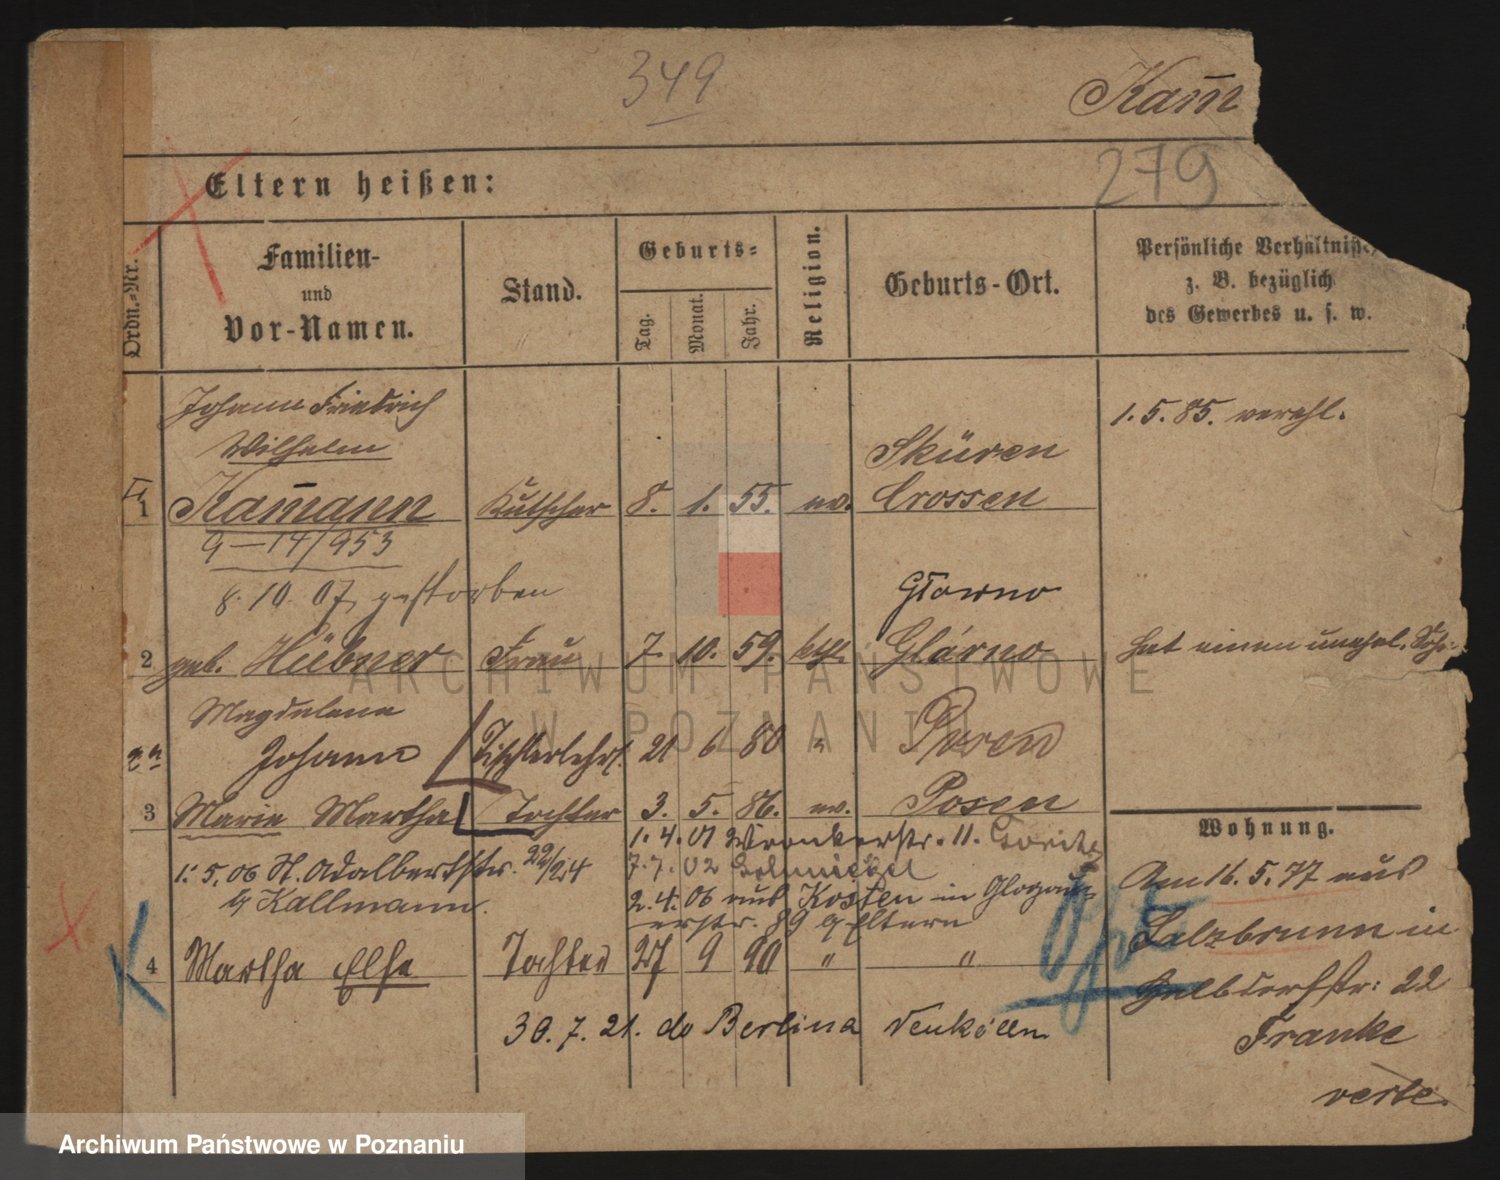 349
Kam̅
279
Eltern heißen:
Ordn.-Nr.
Familien-
und
Vor-Namen.
Stand.
Geburts-
Tag.
Monat.
Jahr.
Religion.
Geburts-Ort.
Persönliche Verhältnisse,
z. B. bezüglich
des Gewerbes u. s. w.
Johann Friedrich
Wilhelm
1 Kam̅ann Kutscher 8. 1. 55. ev. Sküren Crossen
1. 5. 85. verehl.
9-14/953
8. 10. 07 gestorben
Głowno
2 geb. Hübner Frau 7. 10. 59. kth. Glówno
hat einen unehel. Sohn
Magdalena
Johann Tischlerlehrl. 21 6 80 " Posen
3 Marie Martha Tochter 3. 5. 86. ev. Posen
1. 4. 01 Wronkerstr. 11.
1. 5. 06 St. Adalbertstr. 22/24
7. 7. 02
b/ Kallmann.
2. 4. 06 aus Kosten in Glogau-
erstr. 89 b/ Eltern
4 Martha Else Tochter 27 9 90 " "
30. 7. 21. do Berlina Neukölln
Wohnung.
Am 16. 5. 77 aus
Salzbrunn in
Halbdorfstr: 22
Franke
verte.
ARCHIWUM PAŃSTWOWE
W POZNANIU
Archiwum Państwowe w Poznaniu